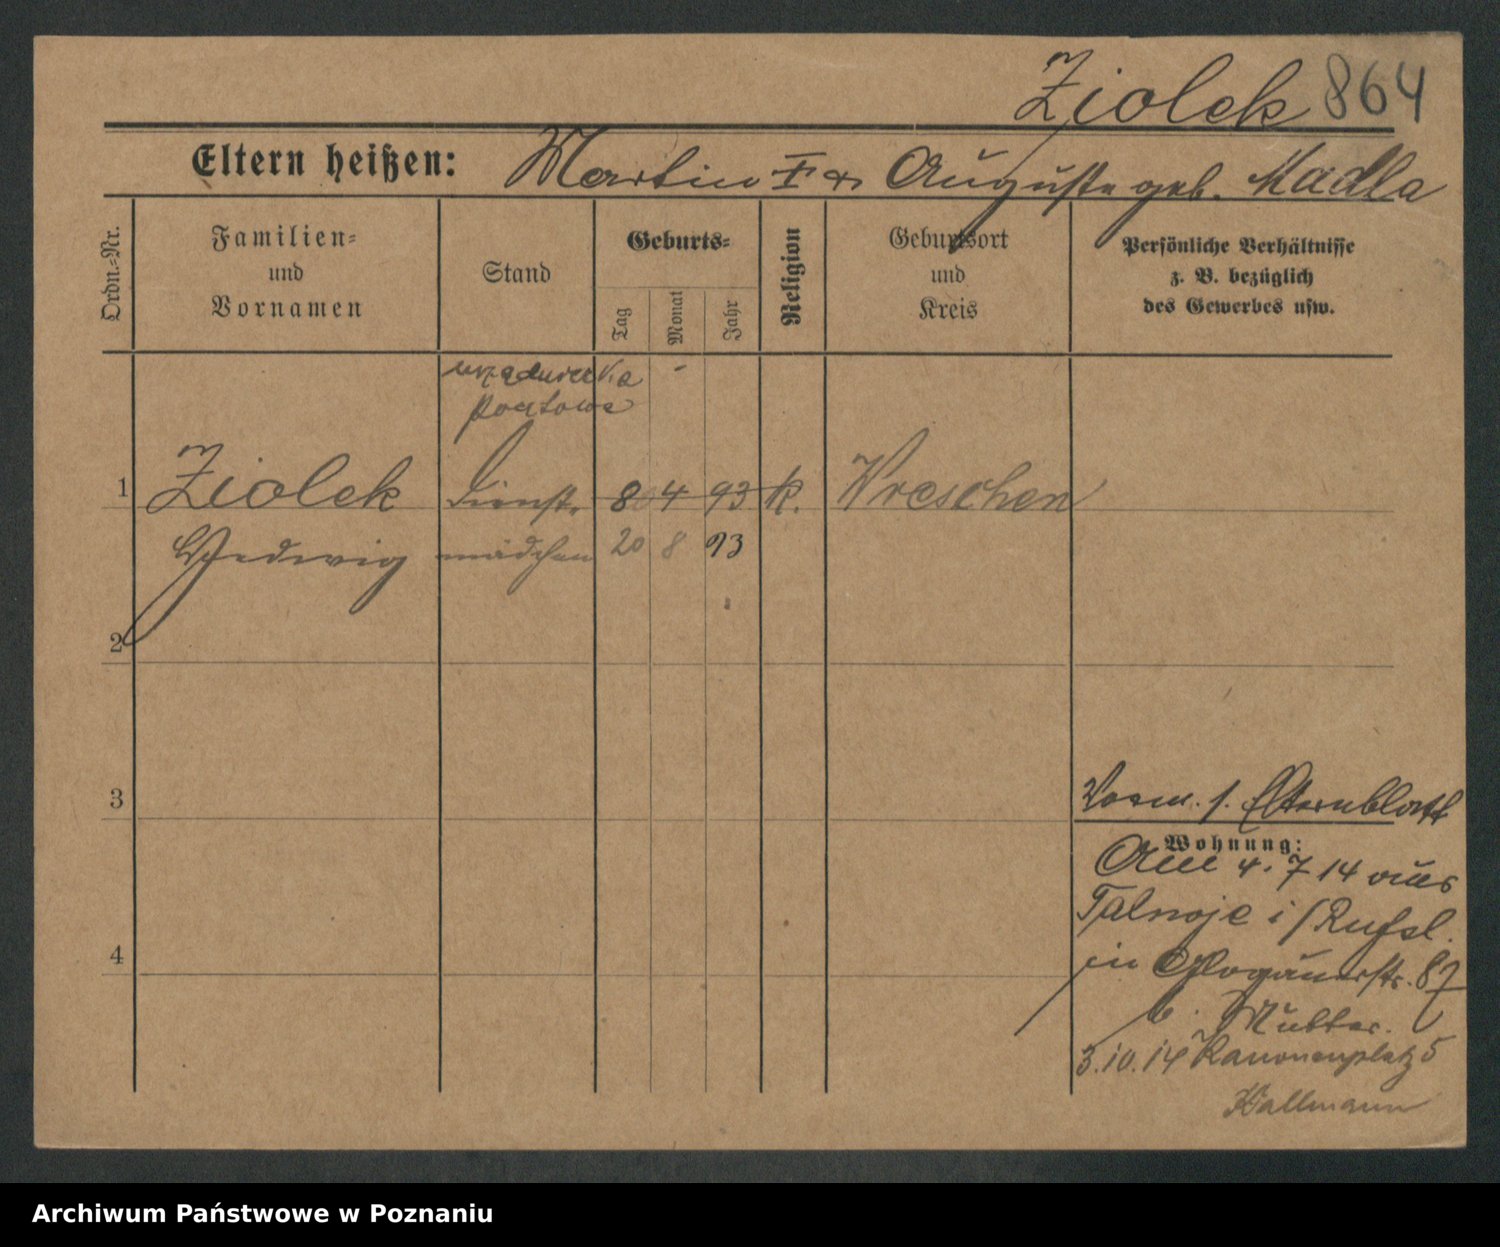 Ziolek 864
Eltern heißen: Martin † & Auguste geb. Madla
Ordn.-Nr.
Familien-
und
Vornamen
Stand
Geburts-
Tag
Monat
Jahr
Religion
Geburtsort
und
Kreis
Persönliche Verhältnisse
z. B. bezüglich
des Gewerbes usw.
urzędniczka
pocztowa
1 Ziolek Dienst- 8 4 93 k. Wreschen
Hedwig mädchen 20 8 93
2
3
4
Vorm. s. Elternblatt
Wohnung:
Am 4.7 14 aus
Talnoje i/Rußl.
in Glogauerstr. 87
b. Mutter.
3.10.14 Kanonenplatz 5
Wallmann
Archiwum Państwowe w Poznaniu